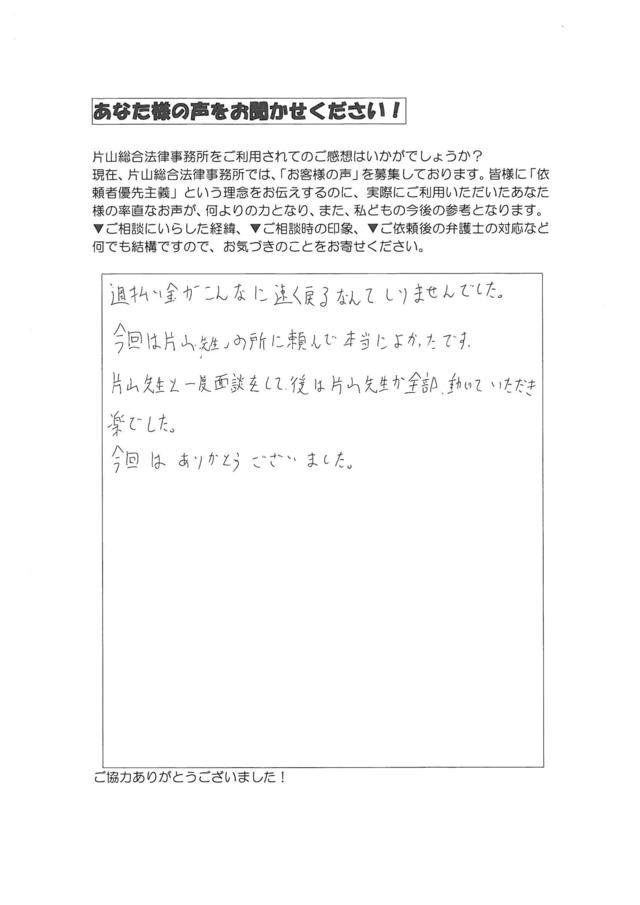 あなた様の声をお聞かせください！
片山総合法律事務所をご利用されてのご感想はいかがでしょうか？
現在、片山総合法律事務所では、「お客様の声」を募集しております。皆様に「依
頼者優先主義」という理念をお伝えするのに、実際にご利用いただいたあなた
様の率直なお声が、何よりの力となり、また、私どもの今後の参考となります。
▼ご相談にいらした経緯、▼ご相談時の印象、▼ご依頼後の弁護士の対応など
何でも結構ですので、お気づきのことをお寄せください。
過払い金がこんなに速く戻るなんてしりませんでした。
今回は片山先生の所に頼んで本当によかったです。
片山先生と一度面談をして、後は片山先生が全部、動いていただき
楽でした。
今回は ありがとうございました。
ご協力ありがとうございました！